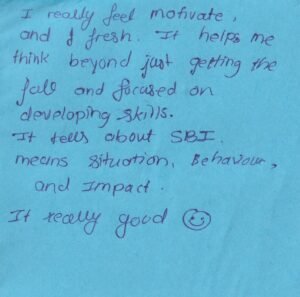 I really feel motivate,
and f fresh. It helps me
think beyond just getting the
fall and focused on
developing skills.
It tells about SBI.
means situation, Behavour,
and Impact.
It really good ☺